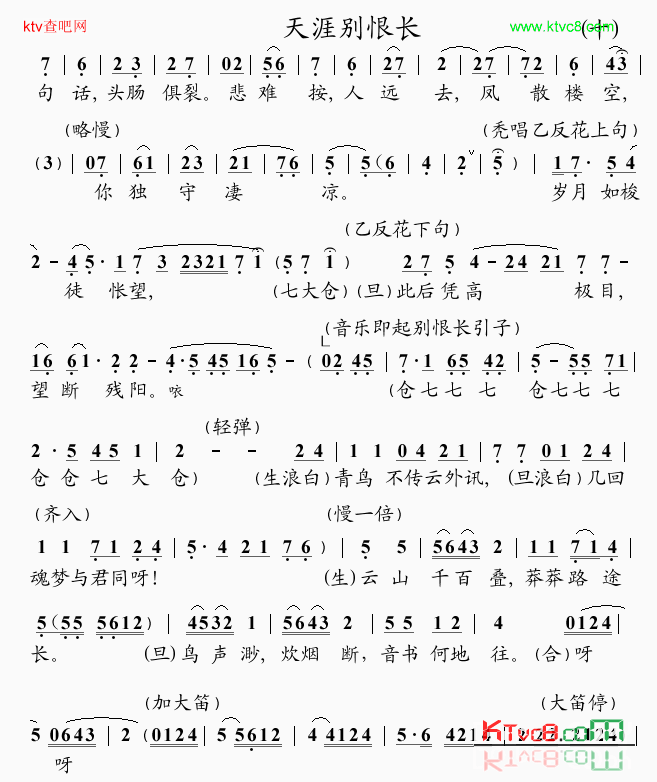 ktv查吧网
天涯别恨长
www.ktvc8.com
(十)
7 | 6 | 2 3 | 2 7 | 02 | 5 6 | 7 | 6 | 2 7 | 2 | 2 7 | 7 2 | 6 | 4 3 |
句 话, 头肠 俱裂。悲 难 按, 人 远 去, 凤 散 楼 空,
(略慢) (秃唱乙反花上句)
(3) | 07 | 61 | 23 | 21 | 76 | 5 | 5 (6 | 4 | 2 | 5 ) | 1 7· 5 4
你 独 守 凄 凉。 岁月 如梭
(乙反花下句)
2 - 4 5· 1 7 3 2321 7 1 (5 7 1) 27 5 4-24 21 7 7 -
徒 怅望, (七大仓)(旦)此后 凭高 极目,
(音乐即起别恨长引子)
16 6 1· 2 2 - 4·5 45 16 5 - ( 02 45 | 7·1 65 42 | 5- 55 71 |
望 断 残阳。咴 (仓七七 七 仓七七 七
(轻弹)
2·5 45 1 | 2 - - 24 | 1 1 04 21 | 7 7 01 24 |
仓 仓 七 大 仓) (生浪白)青鸟 不传云外讯, (旦浪白)几回
(齐入) (慢一倍)
1 1 71 24 | 5·4 21 76 ) | 5 5 | 5643 2 | 11 71 4 |
魂梦与君同呀! (生)云 山 千百 叠, 莽莽路 途
5 (55 5612) | 4532 1 | 5643 2 | 55 12 | 4 0124 |
长。 (旦)鸟 声 渺, 炊烟 断, 音书 何地 往。(合)呀
(加大笛) (大笛停)
5 0643 | 2 (0124 | 5 5612 | 4 4124 | 5·6 4214
呀
KTvc8.com